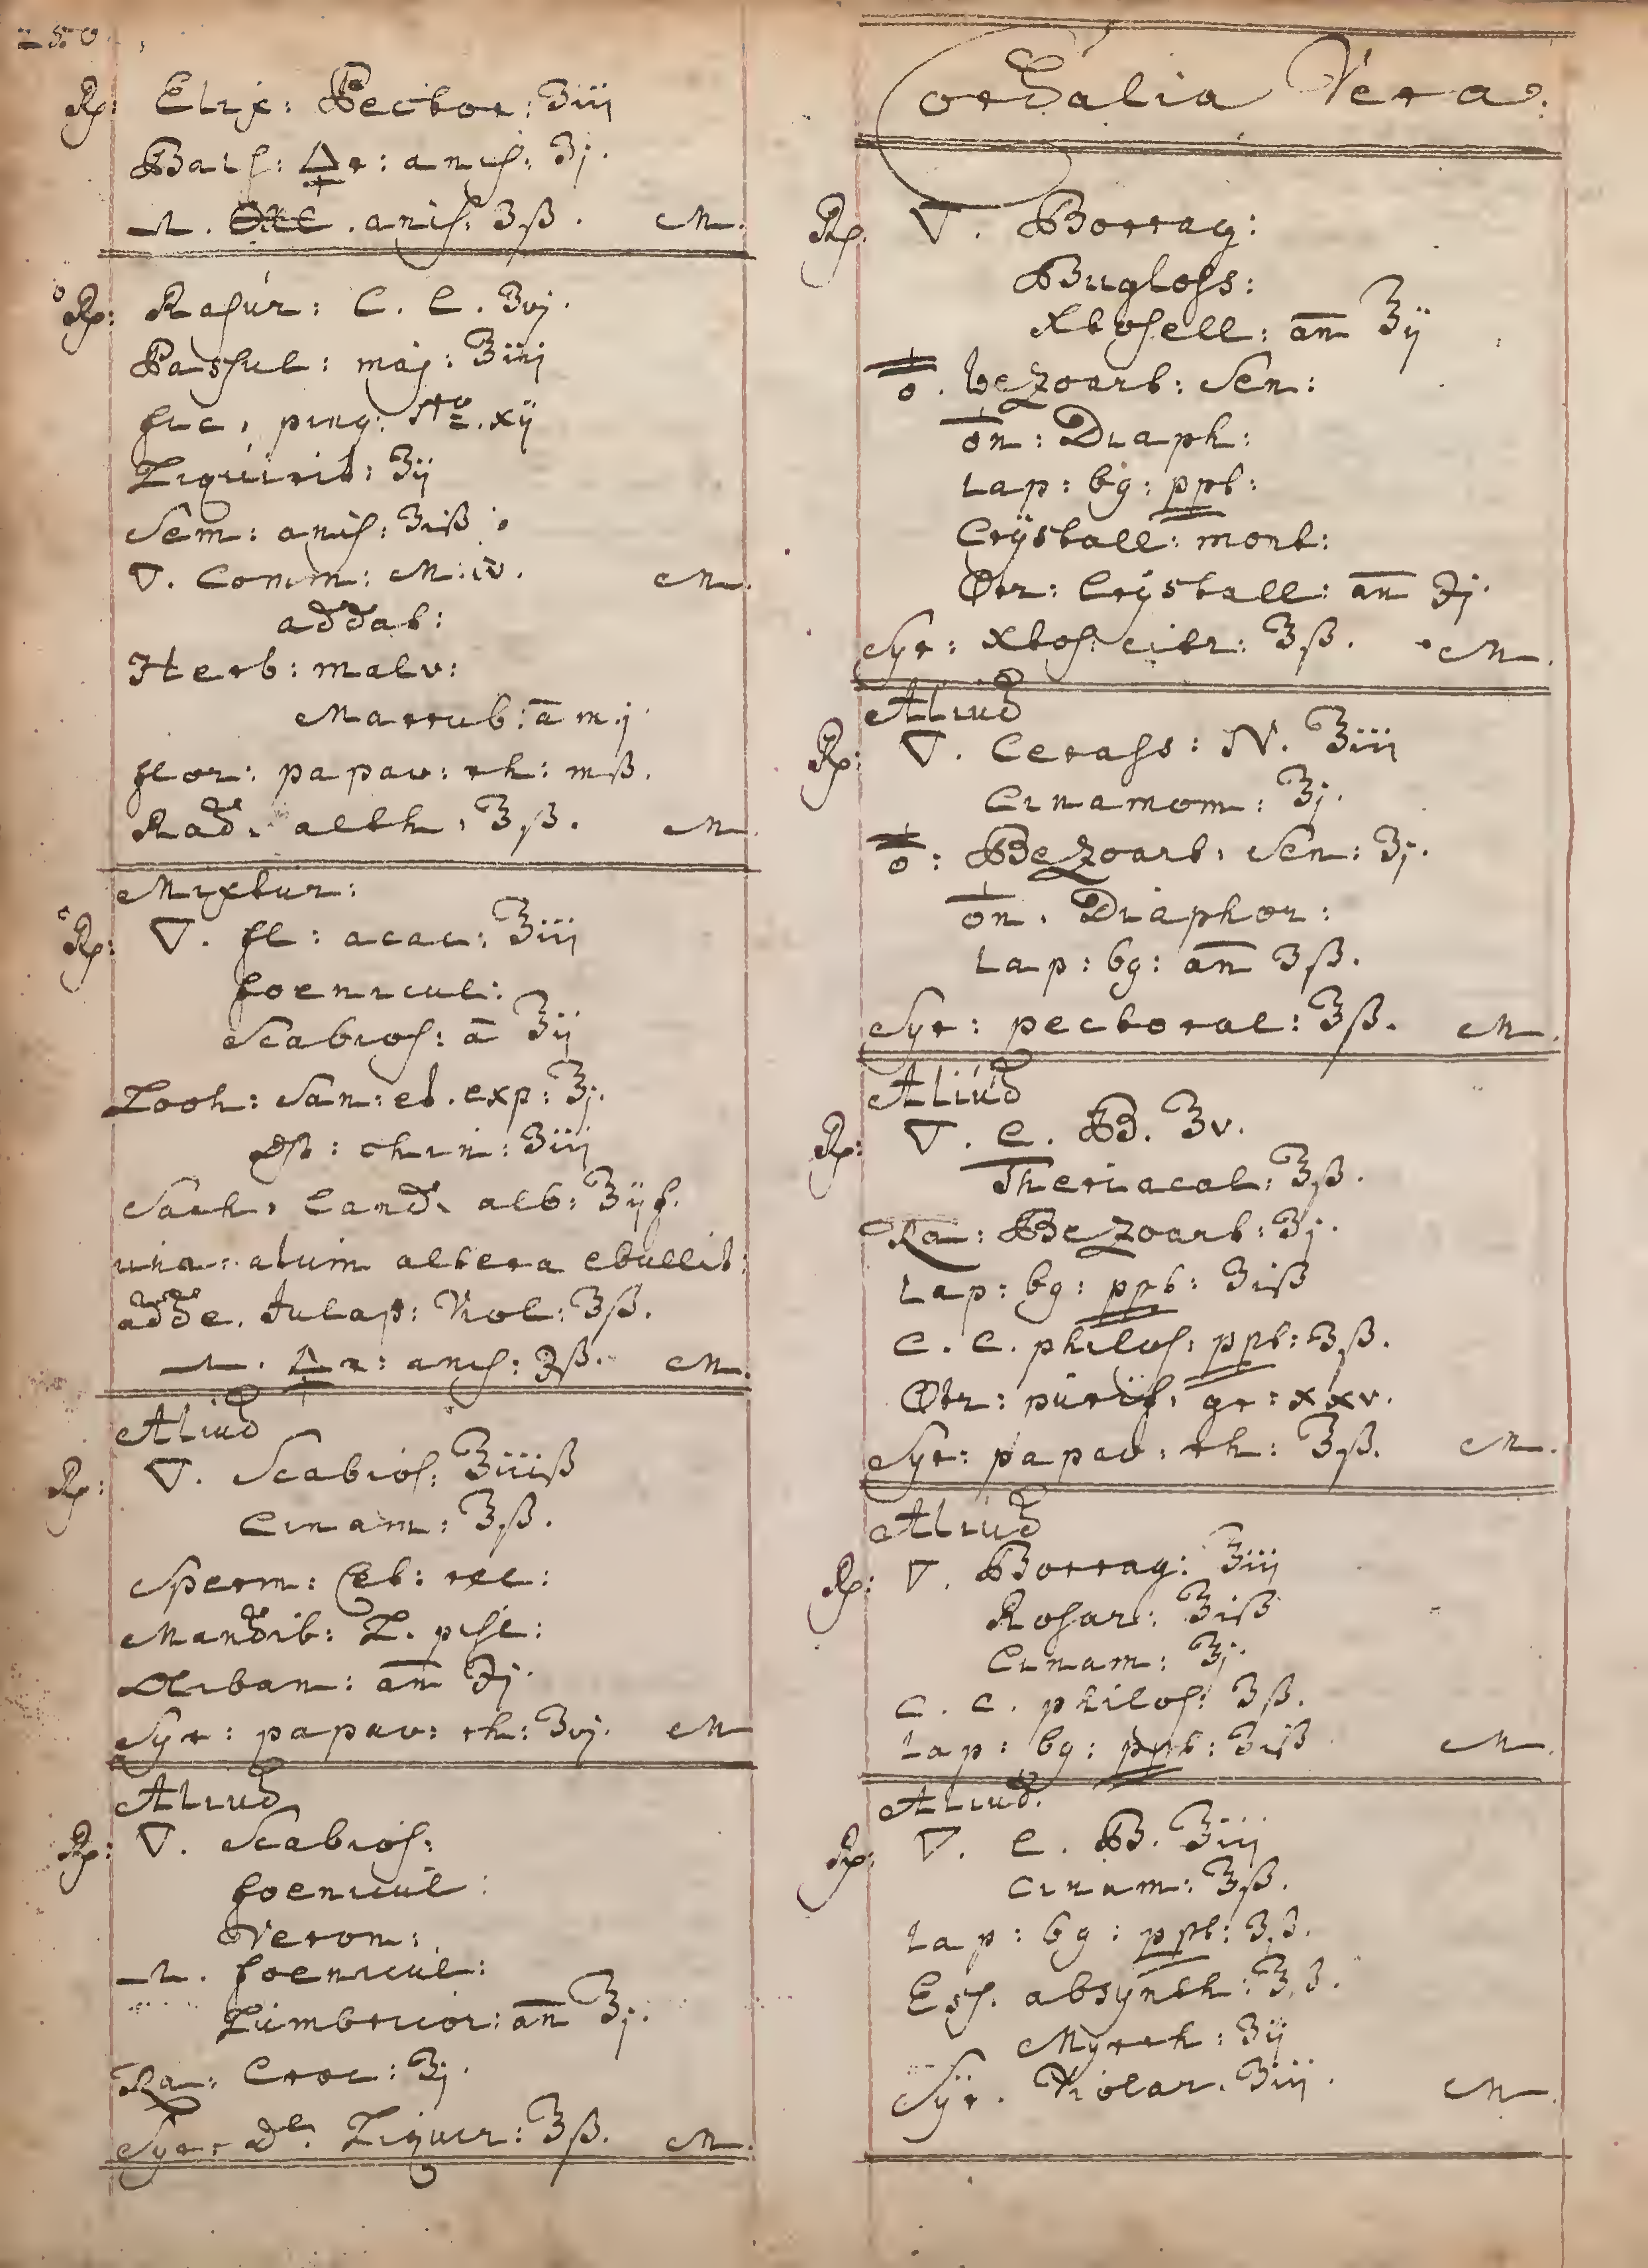 250.
Rp: Elix: Pector: ʒiij
Bals: 🜍r: anis: ʒj.
anis: ʒß. M.
Rp: Rasur: C. C. ʒvj.
Passul: maj: ℥iiij
fic, ping: No. xij
Liquirit: ʒij
Sem: anis: ʒiß
▽. Comm: M: iv. M.
addat:
Herb: malv:
Marrub: ā m.j
flor: papav: rh: mß.
Rad. alth, ℥ß. M.
Mixtur:
Rp: ▽. fl: acac: ℥iij
foenicul:
Scabios: ā ℥ij
Looh: San: et. exp: ℥j.
chin: ʒiij
Sach, Cand. alb: ℥ij
una. alum altera ebullit:
adde. Julap: Viol: ℥ß.
🜍r: anis: ℈ß. M.
Aliud
Rp: ▽. Scabios: ℥iiiß
Cinam: ℥ß.
Sperm: Cet: rec:
Mandib: L. pisc:
Oliban: an ℈j.
Syr: papav: rh: ʒvj. M
Aliud
Rp: ▽. Scabios:
foenicul:
Veron:
foenicul:
Lumbricor: an ℥j.
Ra: Croc: ʒj.
Syr. de. Liquir: ℥ß. M.
Cordialia Vera.
Rp. ▽. Borrag:
Bugloss:
Xtosell: an ℥ij
bezoart: Sen:
♁n: Diaph:
Lap: 69: ppt:
Crÿstall: mont:
Crÿstall: an ℈j.
Syr: Xtos: citr: ℥ß. M.
Aliud
Rp: ▽. Cerass: N. ℥iij
Cinamom: ʒj.
Bezoart, Sen: ʒj.
♁n. Diaphor:
Lap: 69: an ʒß.
Syr: pectoral: ℥ß. M.
Aliud
Rp: ▽. C. B. ℥v.
Theriacal: ℥ß.
Ra: Bezoart: ʒj.
Lap: 69: ppt: ʒiß
C. C. philos: ppt: ʒß.
purif, gr: xxv.
Syr: papav: rh: ℥ß. M.
Aliud
Rp: ▽. Borrag: ℥iij
Rosar: ℥iß
Cinam: ʒj.
C. C. philos: ʒß.
Lap: 69: ppt: ʒiß M.
Aliud.
Rp: ▽. C. B. ℥iij
Cinam: ℥ß.
Lap: 69: ppt: ʒß.
Ess. absynth: ʒß.
Myrrh: ʒij
Sÿr. Violar. ʒiij. M.